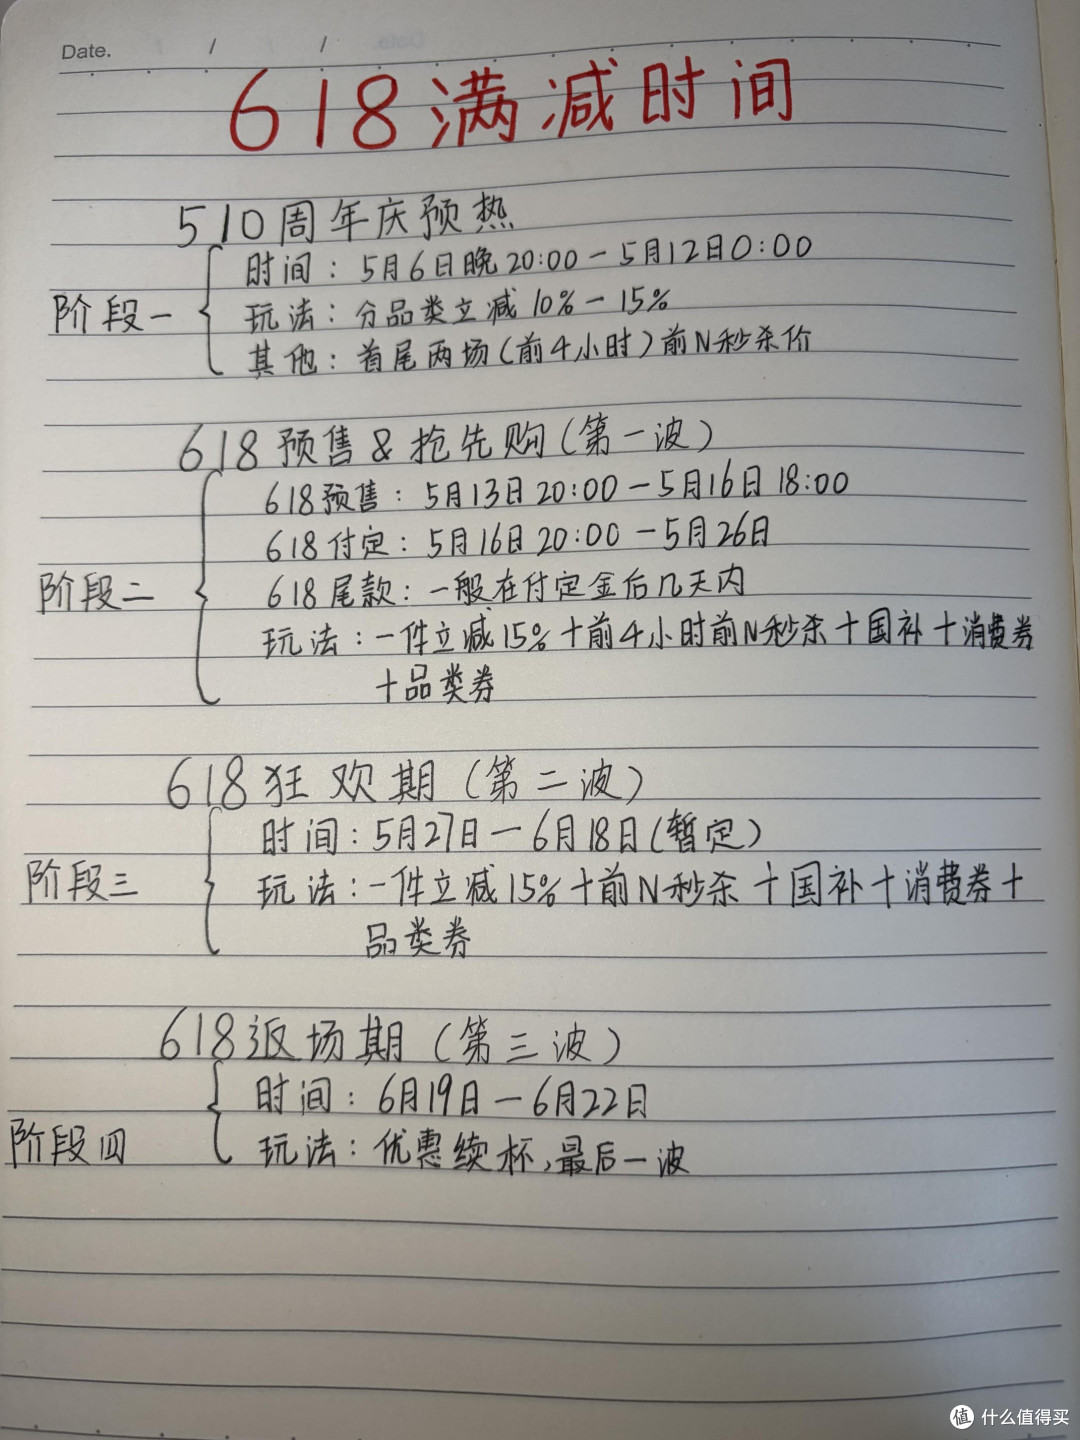 Date. / /
618满减时间
510周年庆预热
时间：5月6日晚20:00-5月12日0:00
阶段一
玩法：分品类立减10%-15%
其他：首尾两场（前4小时）前N秒杀价
618预售&抢先购（第一波）
618预售：5月13日20:00-5月16日18:00
618付定：5月16日20:00-5月26日
阶段二
618尾款：一般在付定金后几天内
玩法：一件立减15%+前4小时前N秒杀+国补+消费券
+品类券
618狂欢期（第二波）
时间：5月27日-6月18日（暂定）
阶段三
玩法：一件立减15%+前N秒杀+国补+消费券+
品类券
618返场期（第三波）
时间：6月19日-6月22日
阶段四
玩法：优惠续杯，最后一波
值 什么值得买